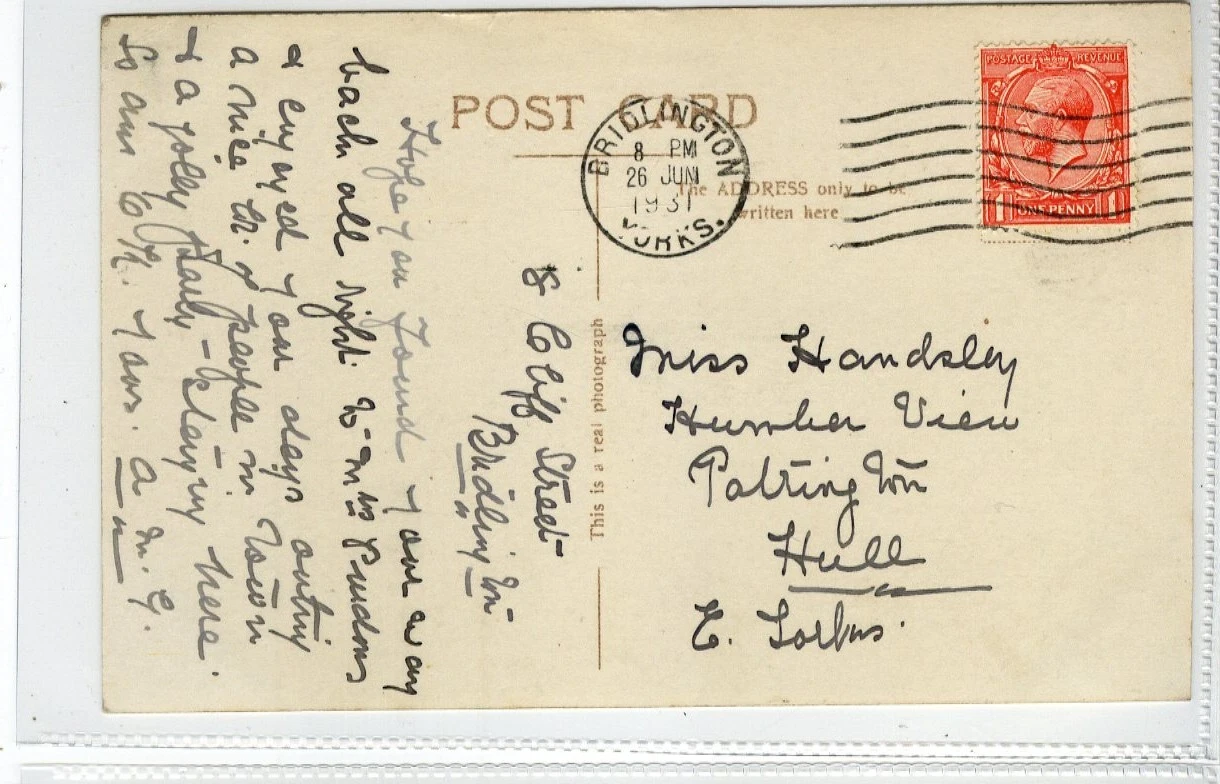 POST CARD
The ADDRESS only to be
written here
This is a real photograph
BRIDLINGTON
8 PM
26 JUN
1931
YORKS.
POSTAGE REVENUE
1 ONE PENNY 1
8 Cliff Street
Bridlington
Hope you found your way
back all right to Mrs
& enjoyed your days outing
a nice lot of people in Town
& a jolly Party staying here.
So am O.K. Yours. A. M. G.
Miss Handsley
Humber View
Patrington
Hull
E. Yorks.